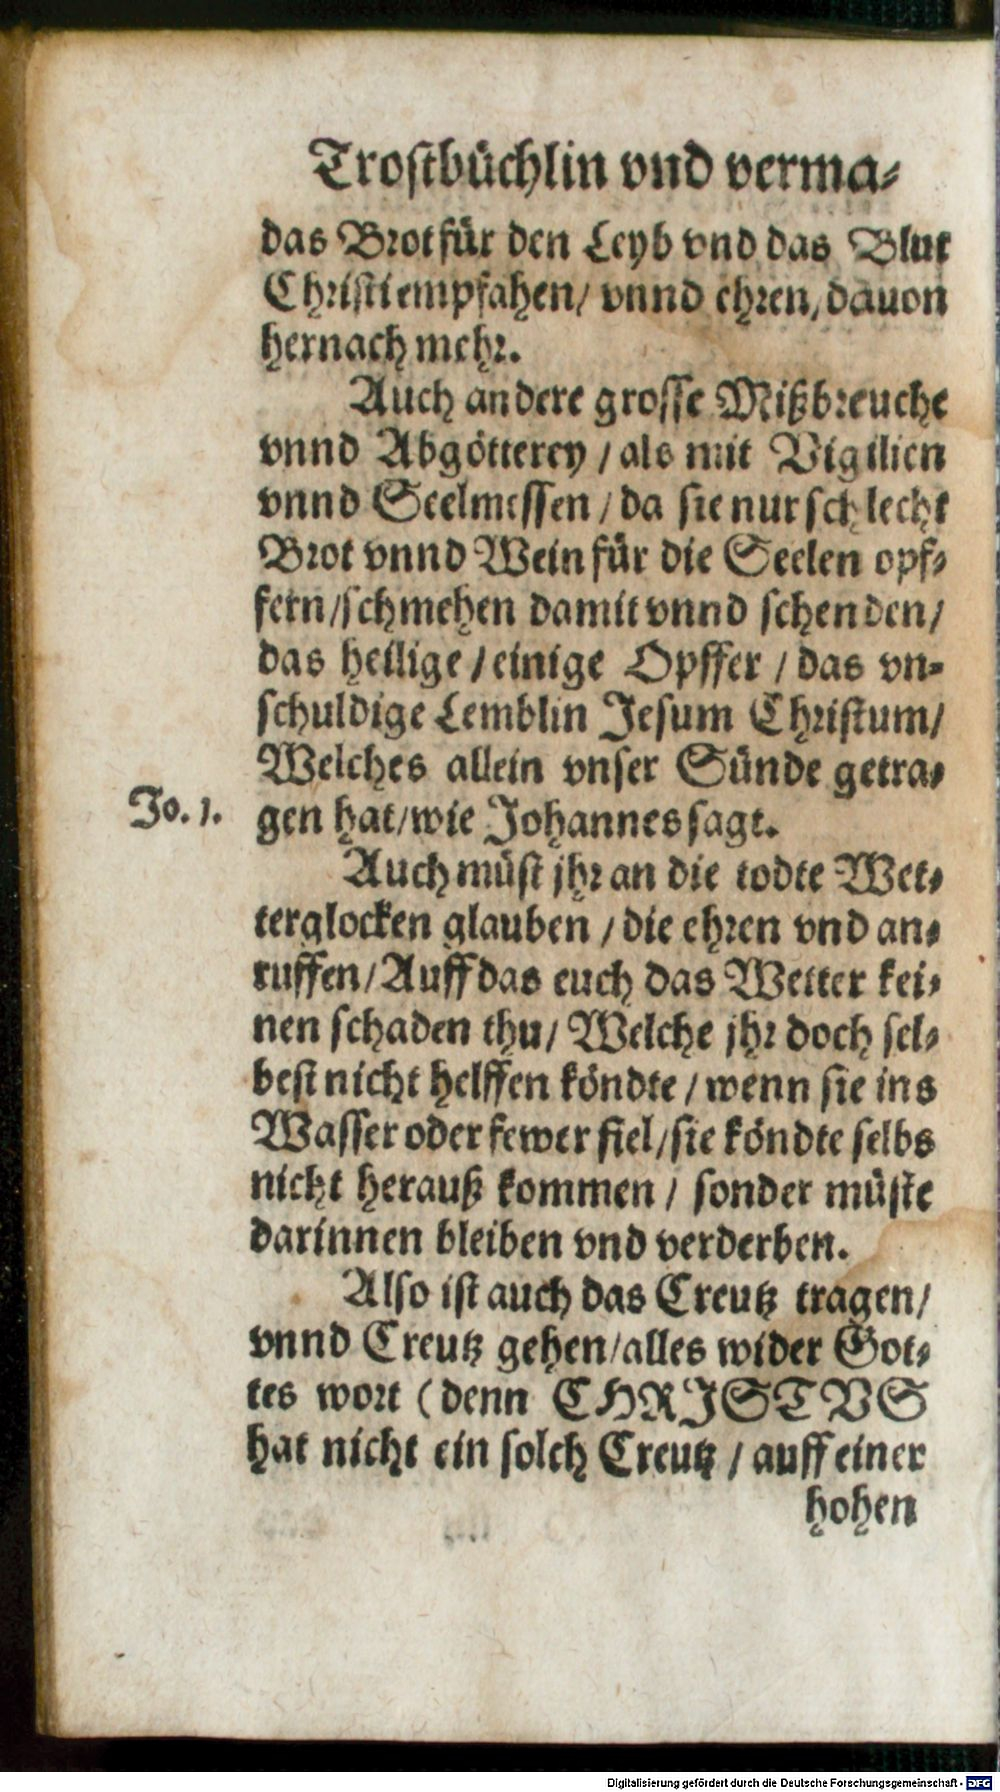 Trostbüchlin vnd verma-
das Brot für den Leyb vnd das Blut
Christi empfahen/ vnnd ehren, dauon
hernach mehr.
Auch andere grosse Mißbreuche
vnnd Abgötterey / als mit Vigilien
vnnd Seelmessen / da sie nur schlecht
Brot vnnd Wein für die Seelen opf-
fern/schmehen damit vnnd schenden/
das heilige / einige Opffer / das vn-
schuldige Lemblin Jesum Christum/
Welches allein vnser Sünde getra-
Jo. 1. gen hat/wie Johannes sagt.
Auch müst jhr an die todte Wet-
terglocken glauben / die ehren vnd an-
ruffen/Auff das euch das Wetter kei-
nen schaden thu/ Welche jhr doch sel-
best nicht helffen köndte / wenn sie ins
Wasser oder fewer fiel/sie köndte selbs
nicht herauß kommen / sonder müste
darinnen bleiben vnd verderben.
Also ist auch das Creutz tragen/
vnnd Creutz gehen/alles wider Got-
tes wort ( denn CHRISTVS
hat nicht ein solch Creutz / auff einer
hohen
Digitalisierung gefördert durch die Deutsche Forschungsgemeinschaft - DFG